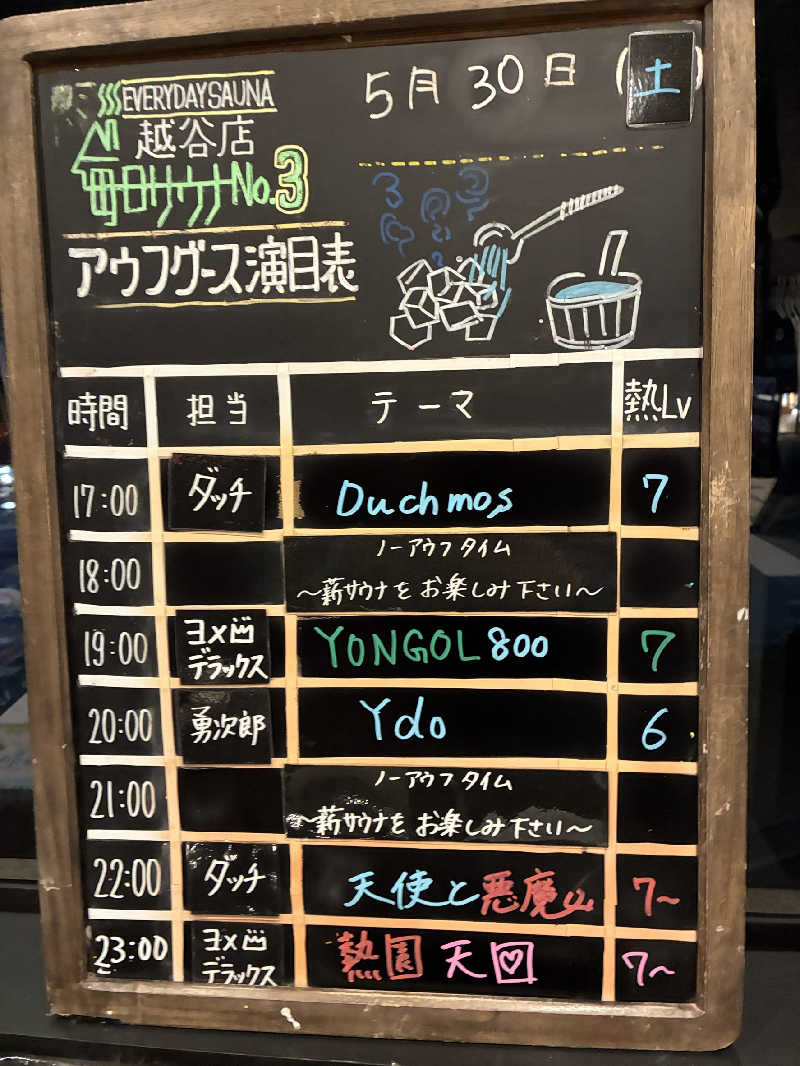 EVERYDAY SAUNA
越谷店
毎日サウナ No.3
アウフグース演目表
5月30日(土)
時間 担当 テーマ 熱Lv
17:00 ダッチ Duchmos 7
18:00 ノーアウフタイム
～薪サウナをお楽しみ下さい～
19:00 ヨメ凶 デラックス YONGOL 800 7
20:00 勇次郎 Ydo 6
21:00 ノーアウフタイム
～薪サウナをお楽しみ下さい～
22:00 ダッチ 天使と悪魔山 7~
23:00 ヨメ凶 デラックス 熱園 天回 7~